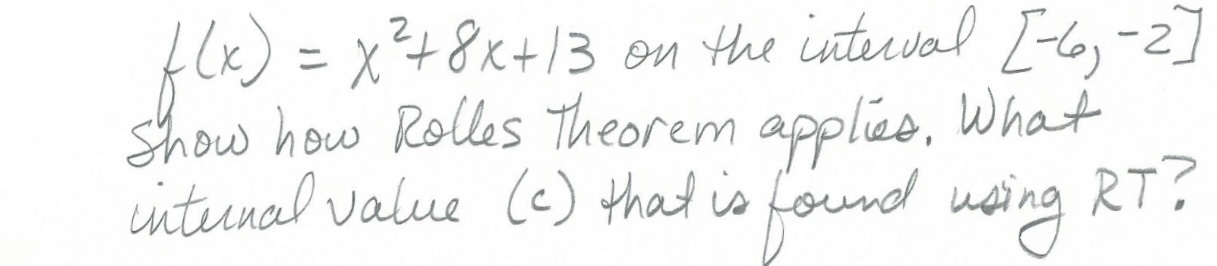 f(x) = x²+8x+13 on the interval [-6, -2]
Show how Rolles Theorem applies. What
internal value (c) that is found using RT?